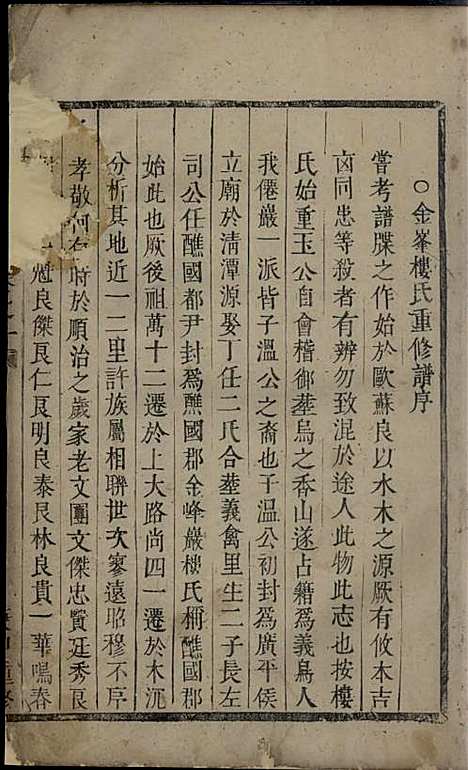 ○金峯樓氏重修譜序
嘗考譜牒之作始於歐蘇良以水木之源厥有攸本吉
凶同患等殺者有辨勿致混於途人此物此志也按樓
氏始重玉公自會稽御塟烏之香山遂占籍爲義烏人
我僊巖一派皆子溫公之裔也子溫公初封爲廣平侯
立廟於清潭源娶丁任二氏合塟義禽里生二子長左
司公任譙國都尹封爲譙國郡金峰巖樓氏稱譙國郡
始此也厥後祖萬十二遷於上大路尚四一遷於木沉
分析其地近一二里許族屬相聯世次寥遠昭穆不序
孝敬何有時於順治之歲家老文團文傑忠賢廷秀良
魁良傑良仁良明良泰良林良貴一華鳴春